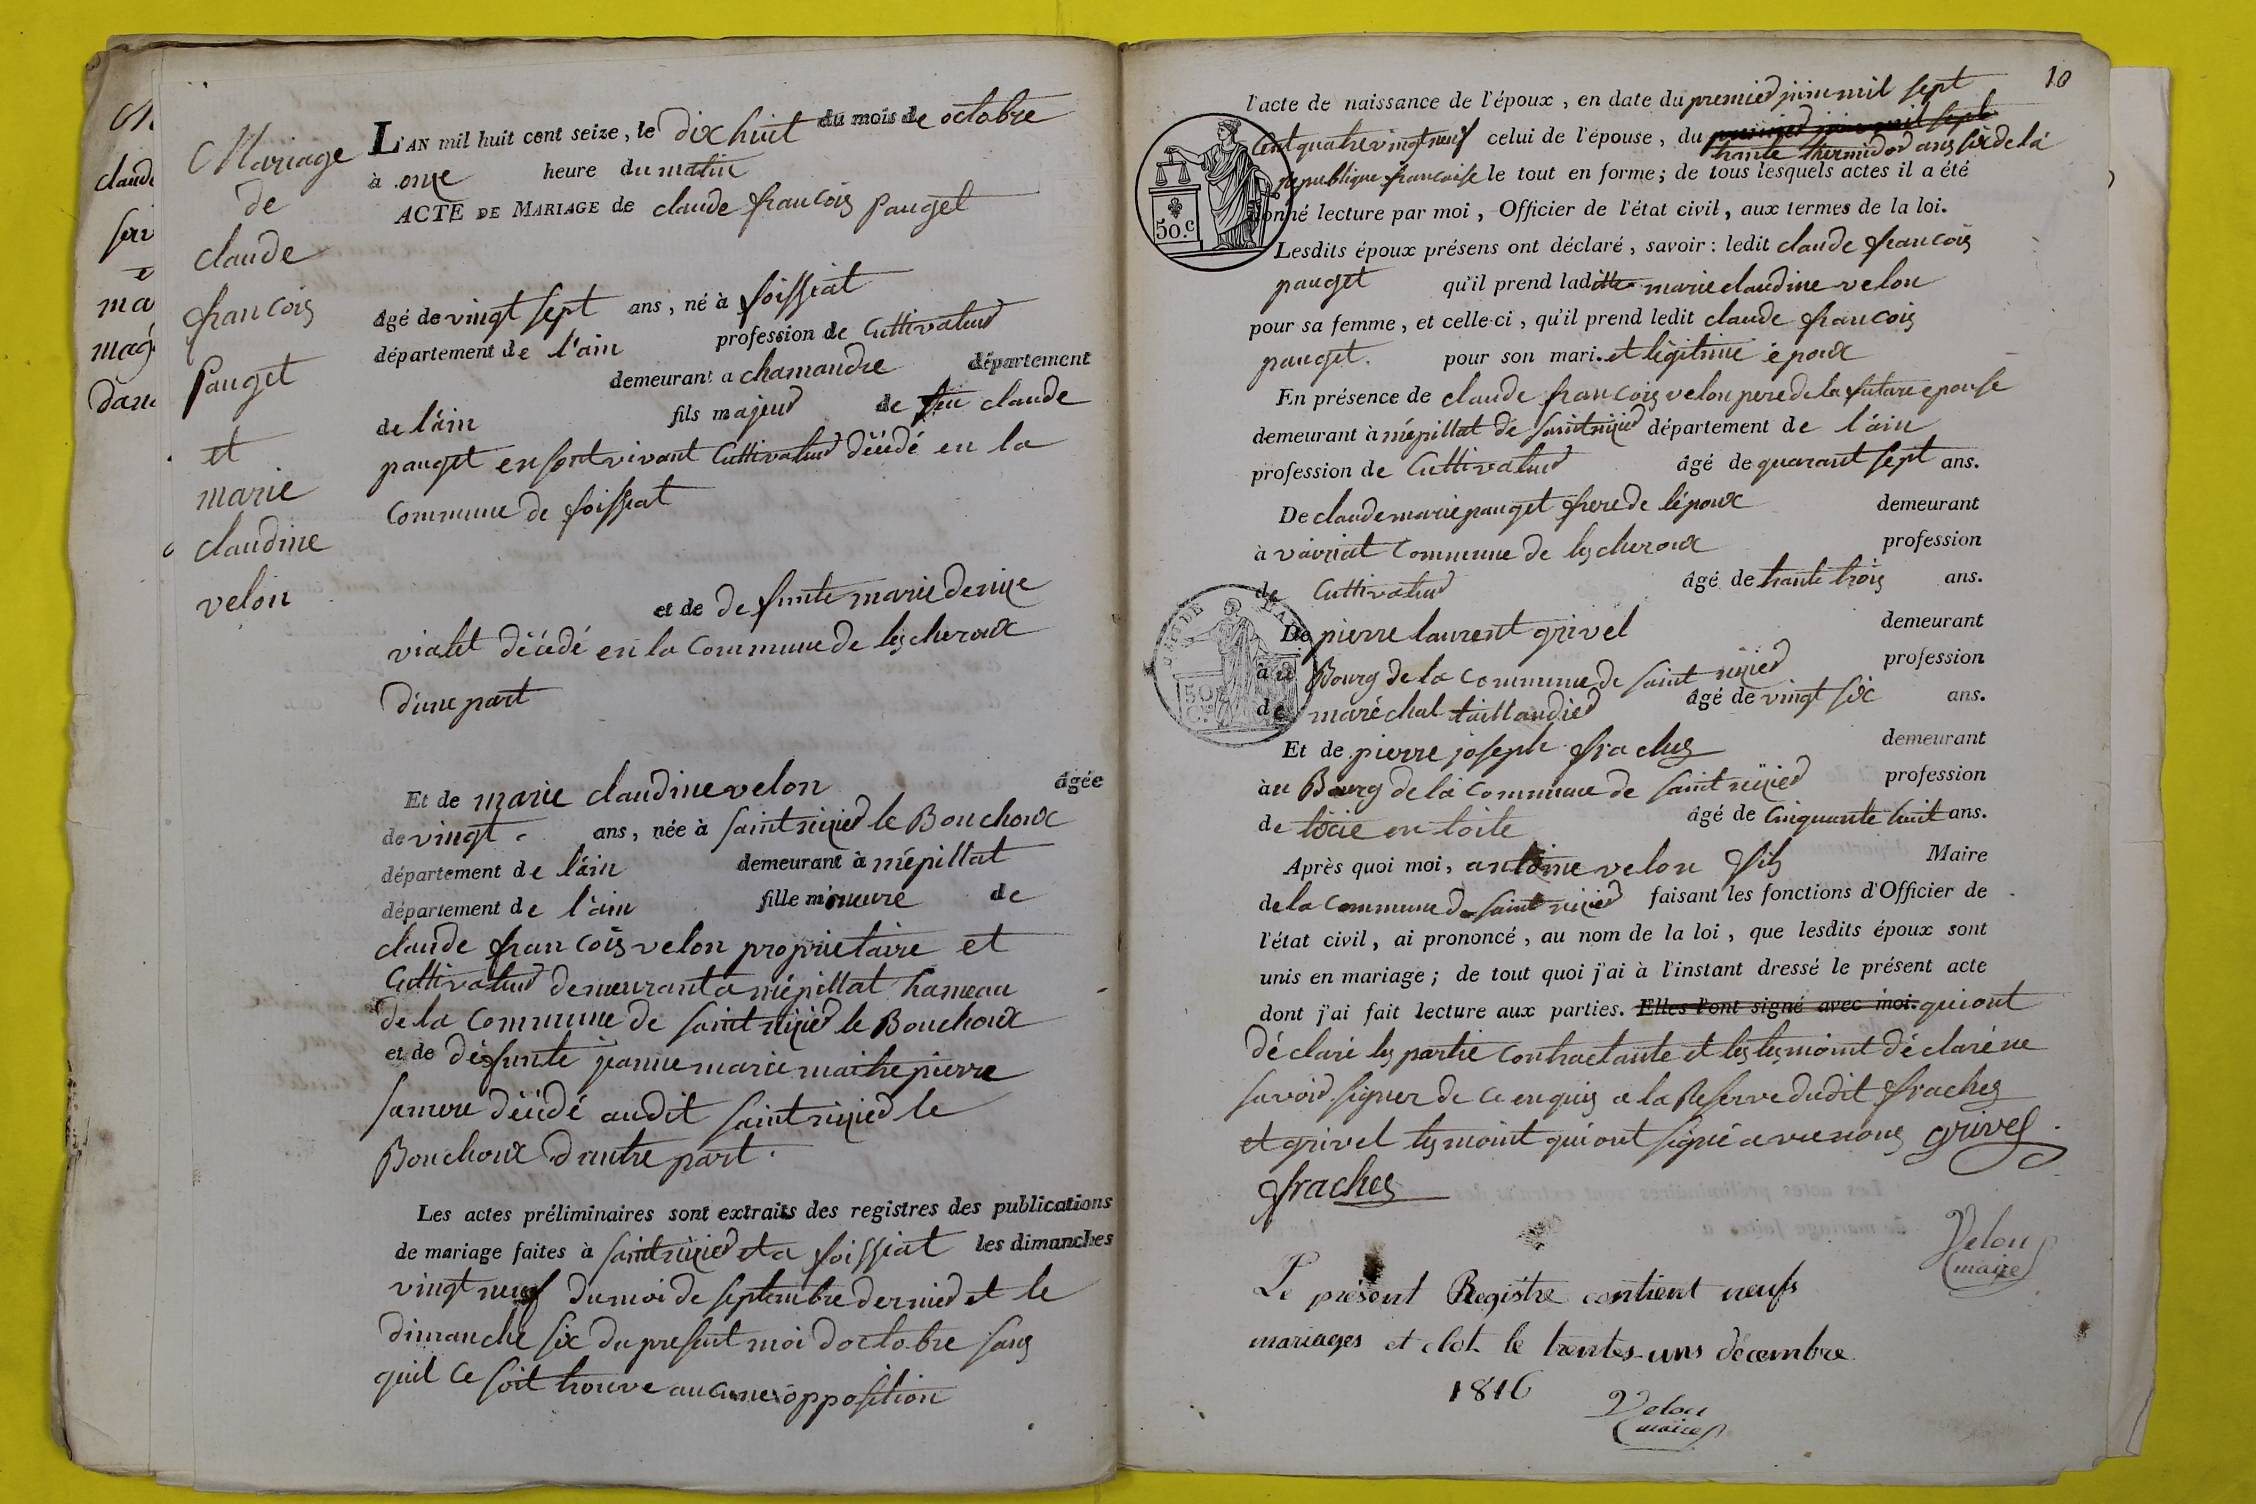 Mariage
de
claude
francois
pauget
et
marie
claudine
velon
L'AN mil huit cent seize, le dix huit du mois de octobre
à onze heure du matin
ACTE DE MARIAGE de claude francois pauget
âgé de vingt sept ans, né à foissiat
département de l'ain profession de Cultivateur
demeurant a chamandre département
de l'ain fils majeur de feu claude
pauget en sont vivant Cultivateur décédé en la
Commune de foissiat
et de de funte marie denise
vialet décédé en la Commune de lescheroux
d'une part
Et de marie claudine velon âgée
de vingt ans, née à saint nizier le Bouchoux
département de l'ain demeurant à mépillat
département de l'ain fille mineure de
claude francois velon proprietaire et
Cultivateur demeurant a mépillat hameau
de la Commune de saint nizier le Bouchoux
et de défunte jeanne marie maitre pierre
samere décédé audit saint nizier le
Bouchoux d'autre part.
Les actes préliminaires sont extraits des registres des publications
de mariage faites à saint nizier et a foissiat les dimanches
vingt neuf du moi de septembre dernier et le
dimanche six du present moi d octobre sans
quil Ce soit trouve aucune opposition
10
l'acte de naissance de l'époux, en date du premier juin mil sept
Cent quatre vingt neuf celui de l'épouse, du premier juin mil sept
trante thermidor ans six de la
republique francoise le tout en forme; de tous lesquels actes il a été
donné lecture par moi, Officier de l'état civil, aux termes de la loi.
50.c
Lesdits époux présens ont déclaré, savoir: ledit claude francois
pauget qu'il prend laditte marie claudine velon
pour sa femme, et celle-ci, qu'il prend ledit claude francois
pauget. pour son mari. et légitime époux
En présence de claude francois velon pere de la future epouse
demeurant à mépillat de saint nizier département de l'ain
profession de Cultivateur âgé de quarant sept ans.
De claude marie pauget frere de l'époux demeurant
à vavriat Commune de lescheroux profession
de Cultivateur âgé de trante trois ans.
De pierre laurent grivel demeurant
à u Bourg de la Commune de saint nizier profession
de maréchal taillandier âgé de vingt six ans.
Et de pierre joseph fraches demeurant
àu Bourg de la Commune de saint nizier profession
de tixie en toile âgé de Cinquante huit ans.
Après quoi moi, antoine velon fils Maire
de la Commune de saint nizier faisant les fonctions d'Officier de
l'état civil, ai prononcé, au nom de la loi, que lesdits époux sont
unis en mariage; de tout quoi j'ai à l'instant dressé le présent acte
dont j'ai fait lecture aux parties. Elles l'ont signé avec moi. qui ont
déclaré les partie Contractante et les tesmoint déclaré ne
savoir signer de Ce enquis a la Reserve dudit fraches
et grivel tesmoint qui ont signé avec nous grivel
fraches
Velon
maire
Le présent Registre contient neufs
mariages et clot le trentes-uns décembre
1816
Velon
maire